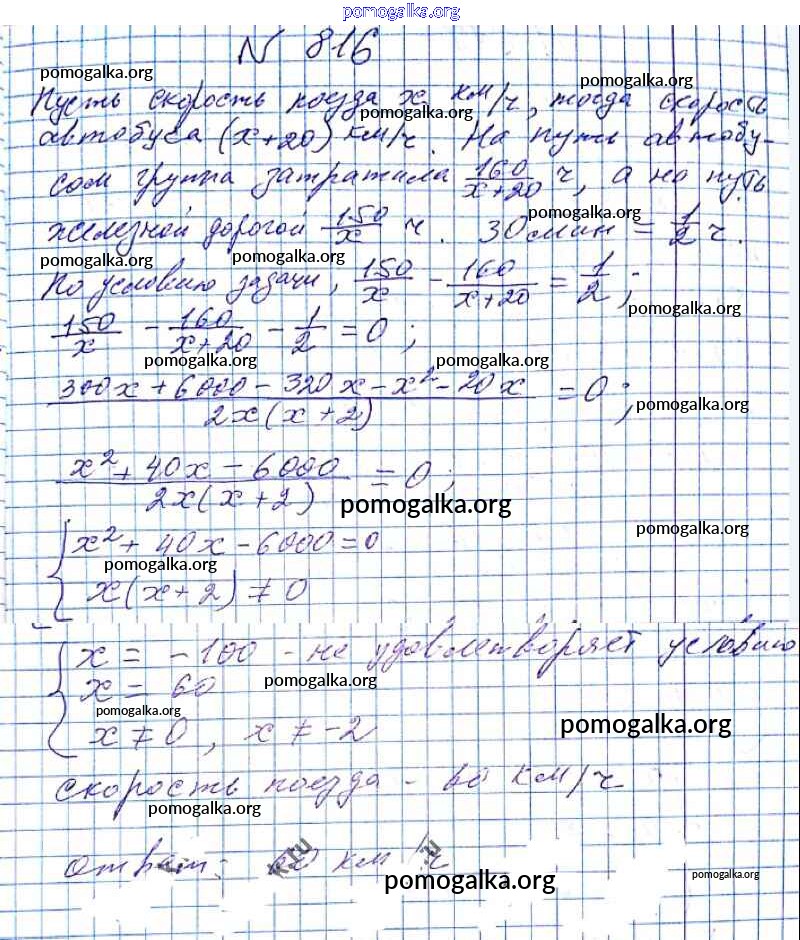 pomogalka.org
N 816
pomogalka.org
pomogalka.org
Пусть скорость поезда x км/ч, тогда скорость
pomogalka.org
автобуса (x+20) км/ч. На путь автобу-
сом группа затратила 160/(x+20) ч, а на путь
pomogalka.org
железной дорогой 150/x ч. 30 мин = 1/2 ч.
pomogalka.org
pomogalka.org
По условию задачи, 150/x - 160/(x+20) = 1/2;
pomogalka.org
150/x - 160/(x+20) - 1/2 = 0;
pomogalka.org
pomogalka.org
(300x + 6000 - 320x - x² - 20x)/(2x(x+2)) = 0;
pomogalka.org
(x² + 40x - 6000)/(2x(x+2)) = 0;
pomogalka.org
pomogalka.org
{ x² + 40x - 6000 = 0
pomogalka.org
x(x+2) ≠ 0
{ x = -100 - не удовлетворяет условию
x = 60
pomogalka.org
pomogalka.org
x ≠ 0, x ≠ -2
pomogalka.org
скорость поезда - 60 км/ч.
pomogalka.org
Ответ: 60 км/ч
pomogalka.org
pomogalka.org